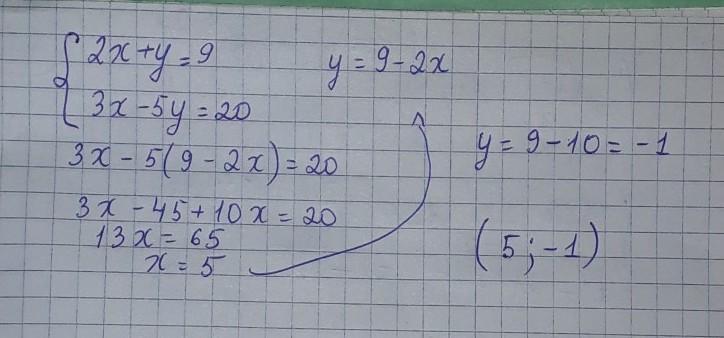 2x+y=9
3x-5y=20
y=9-2x
3x-5(9-2x)=20
3x-45+10x=20
13x=65
x=5
y=9-10=-1
(5;-1)